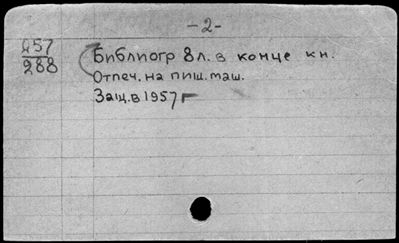 -2-
457
288
Библиогр 8 л. в конце кн.
Отпеч. на пиш. маш.
Защ. в 1957 г